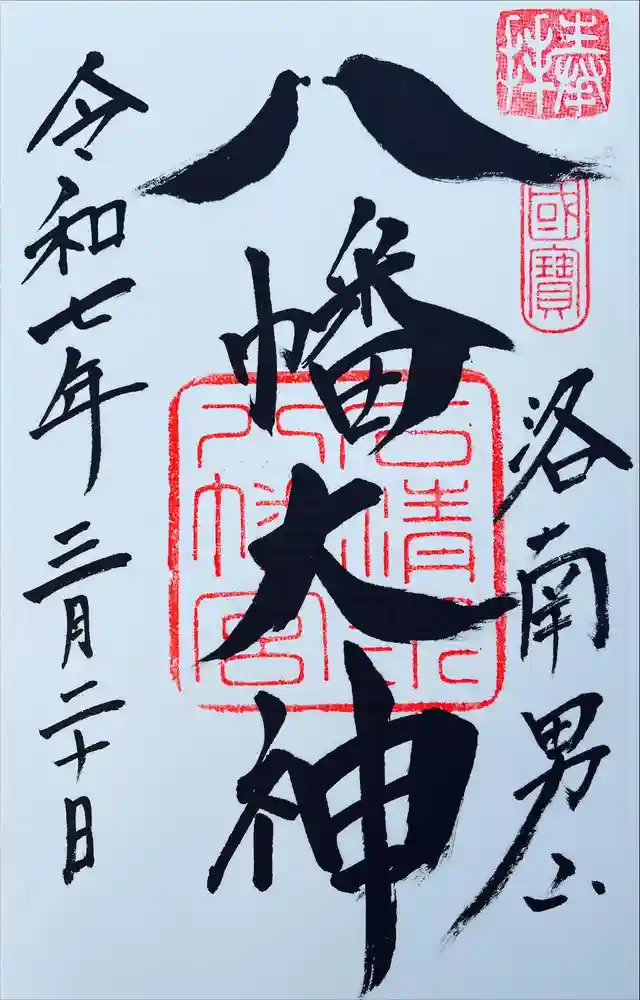 奉拝
國寶
洛南男山
八幡大神
石清水
八幡宮
令和七年 三月二十日